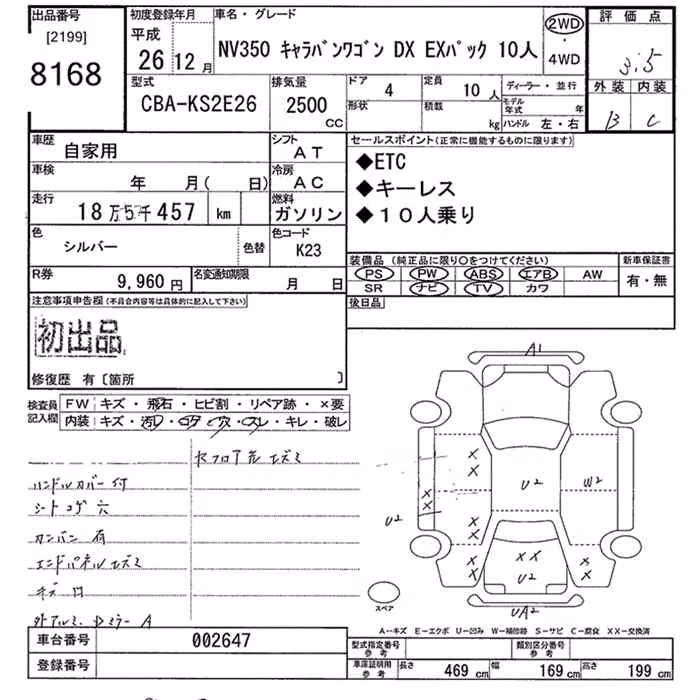 出品番号
[2199]
8168
初度登録年月
平成
26 12月
車名・グレード
NV350 キャラバンワゴン DX EXパック 10人
2WD
・
4WD
評価点
3.5
外装 内装
B C
型式
CBA-KS2E26
排気量
2500
CC
ドア
4
定員
10人
形状
積載
kg
ディーラー・並行
モデル年式 年
ハンドル 左・右
車歴
自家用
シフト
AT
車検
年 月( 日)
冷房
AC
走行
18万5千457 km
燃料
ガソリン
色
シルバー
色替
色コード
K23
R券
9,960円
名変通知期限
月 日
セールスポイント(正常に機能するものに限ります)
◆ETC
◆キーレス
◆10人乗り
装備品(純正品に限り〇をつけてください)
新車保証書
PS PW ABS エアB AW
有・無
SR ナビ TV カワ
後日品
注意事項申告欄(不具合内容等は具体的に記入して下さい)
初出品
修復歴 有〔箇所 〕
検査員記入欄
FW キズ・飛石・ヒビ割・リペア跡・×要
内装 キズ・汚レ・コゲ・穴・スレ・キレ・破レ
ハンドルカバー付
シートコゲ穴
カンバン有
エンドパネルユズミ
A1
U2
U2
W2
U2
UA2
XX
スペア
A-キズ E-エクボ U-凹み W-補修跡 S-サビ C-腐食 XX-交換済
車台番号
002647
登録番号
型式指定番号
参考
類別区分番号
参考
車庫証明用
参考
長さ 469 cm
幅 169 cm
高さ 199 cm